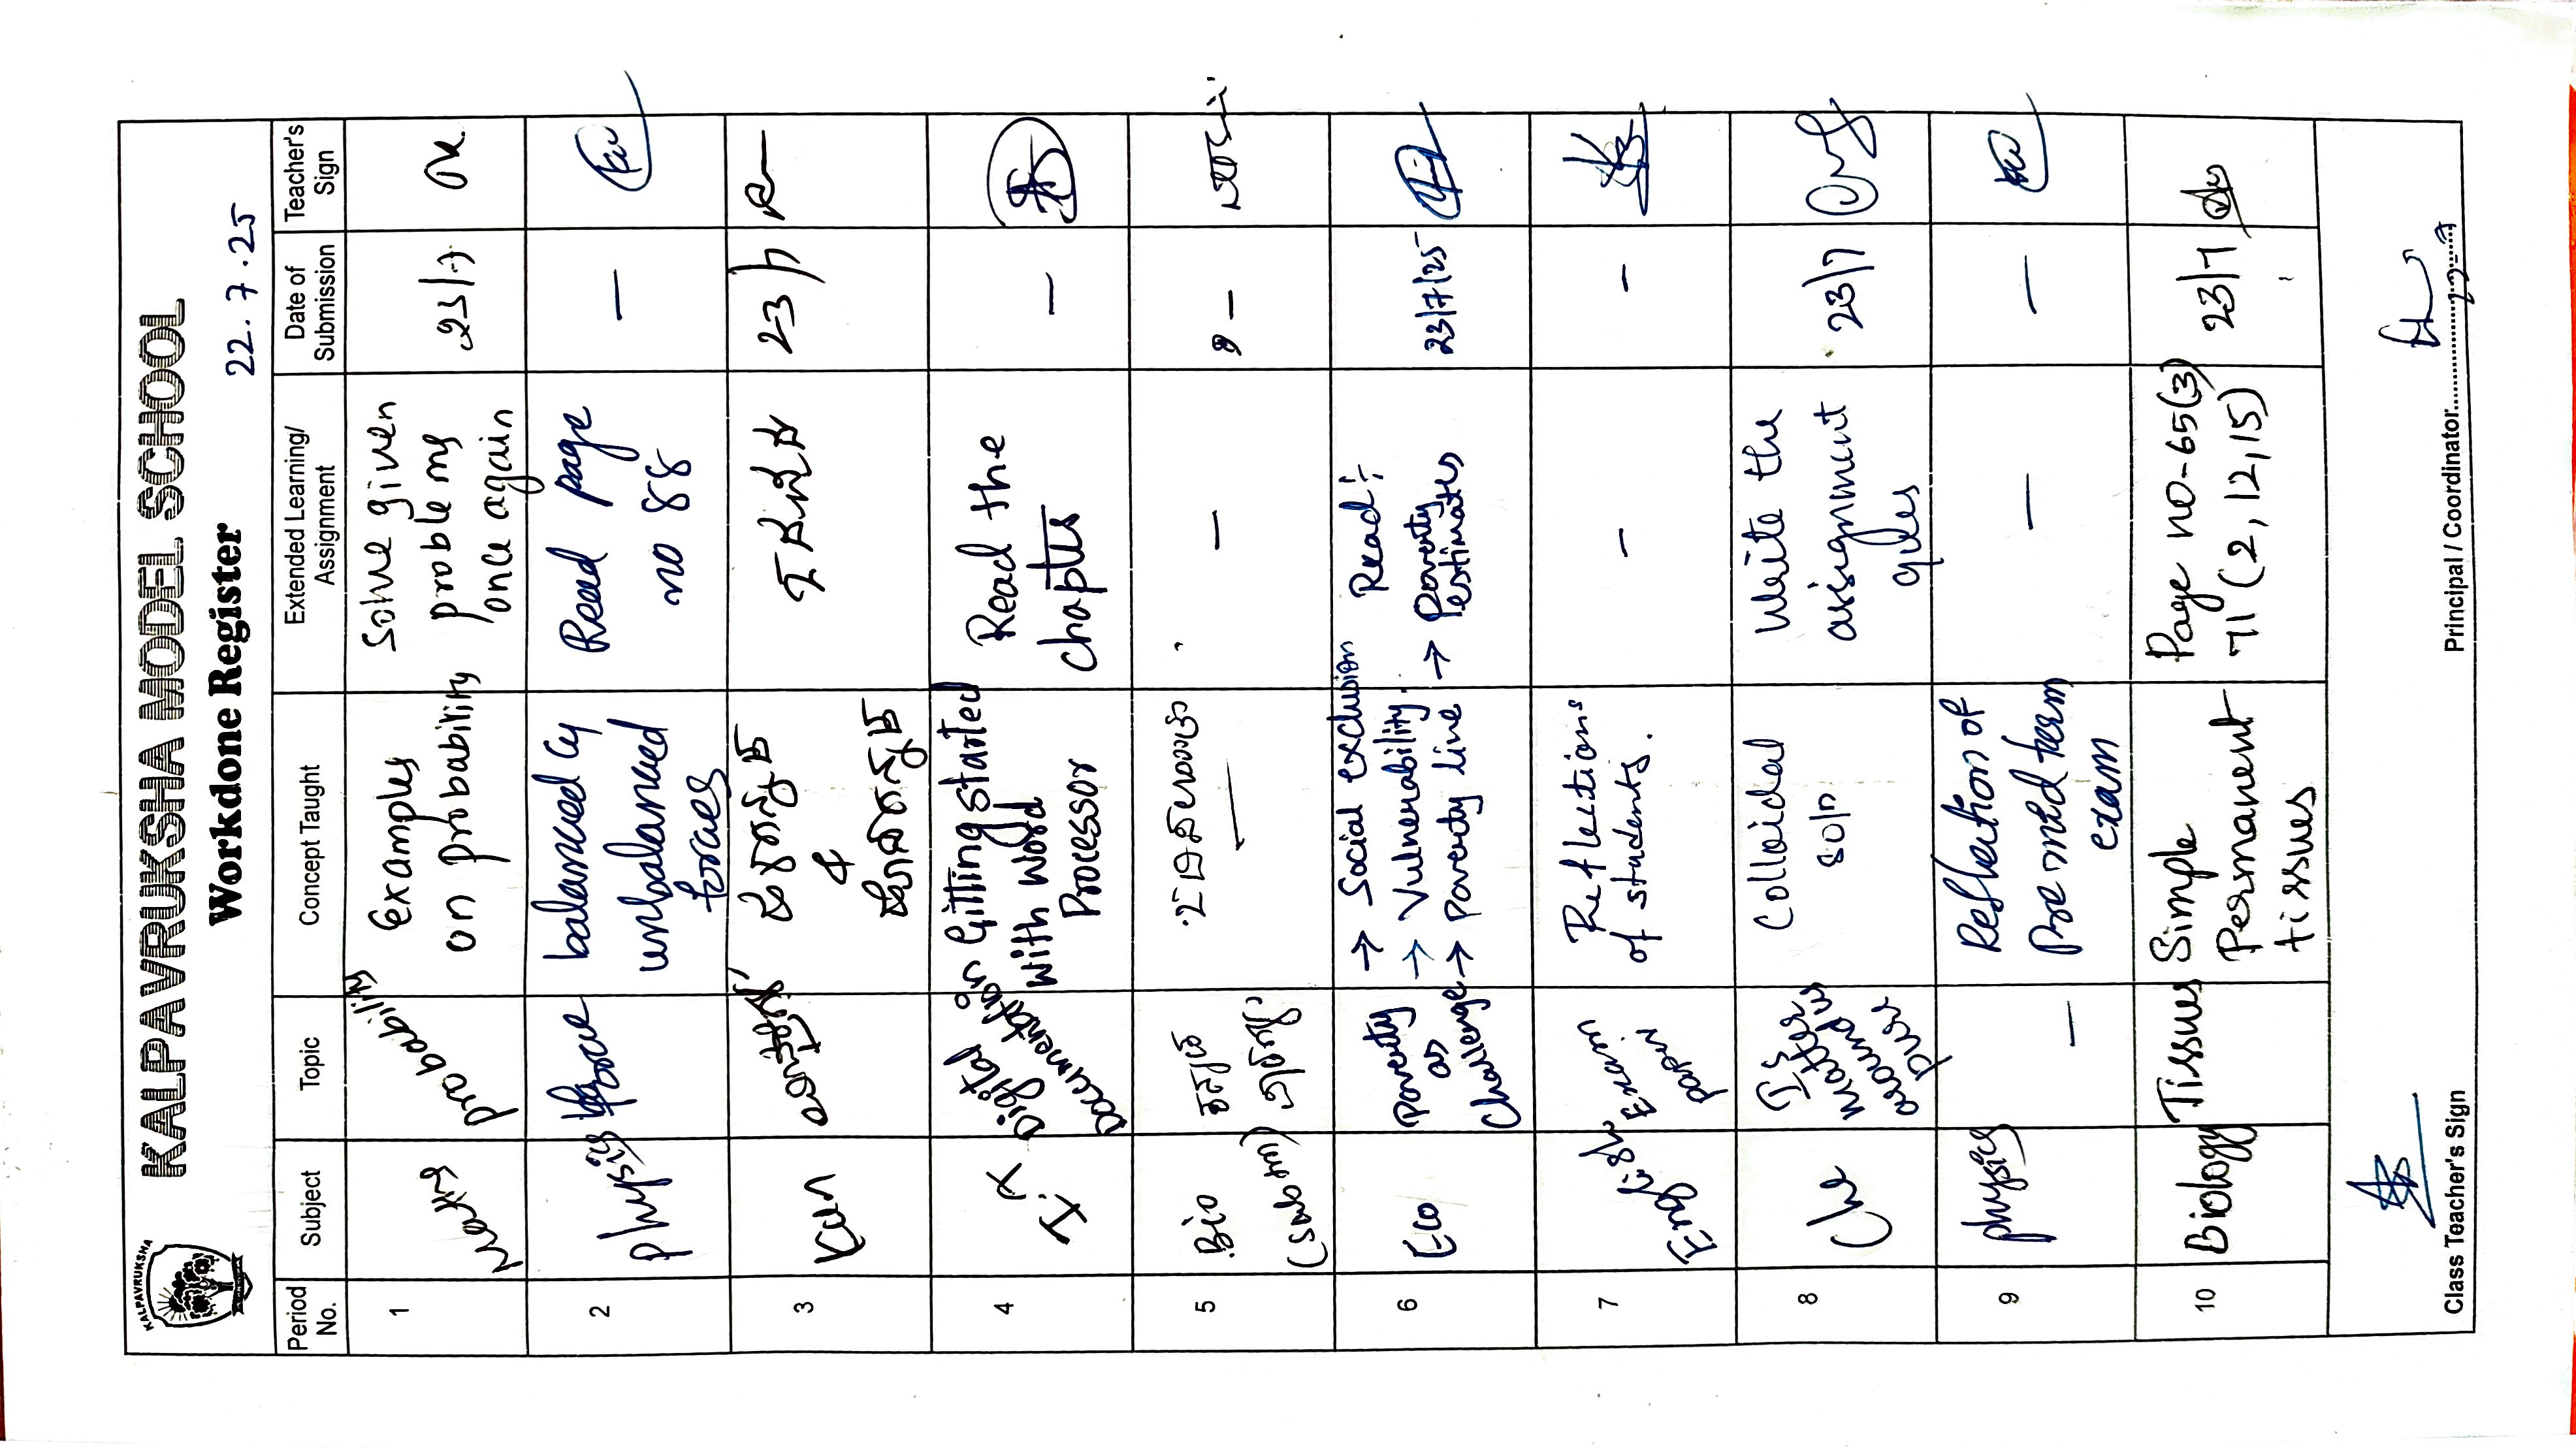 KALPAVRUKSHA
KALPAVRUKSHA MODEL SCHOOL
Workdone Register
22.7.25
Period No. Subject Topic Concept Taught Extended Learning/ Assignment Date of Submission Teacher's Sign
1 probability Examples on probability Solve given problems once again 23/7
2 physics force balanced & unbalanced forces Read page no 88 —
3 Kan & 23/7
4 I.T Digital Documentation Gitting started with word Processor Read the chapters —
5 Bio — —
6 Eco Poverty as Challenge → Social exclusion → Vulnerability. → Poverty line Read:- → Poverty estimates 23/7/25
7 English Exam paper Reflections of students. – –
8 Che Is matter around us pure Colloidal soln Write the assignment ques 23/7
9 physics — Reflection of Pre mid term exam — —
10 Biology Tissues Simple Permanent tissues Page no-65(3) 71 (2, 12, 15) 23/7
Class Teacher's Sign
Principal / Coordinator